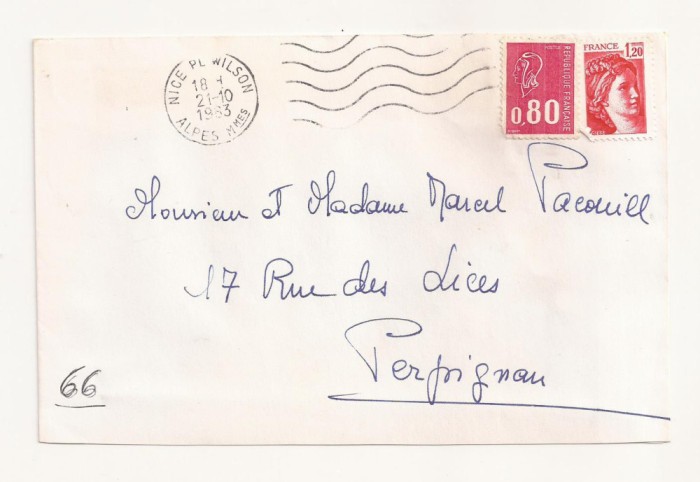 NICE PL WILSON
18 H
21-10
1983
ALPES MMES
POSTES
RÉPUBLIQUE FRANÇAISE
0.80
FRANCE
1,20
Monsieur et Madame Marcel Pacouill
17 Rue des Lices
Perpignan
66